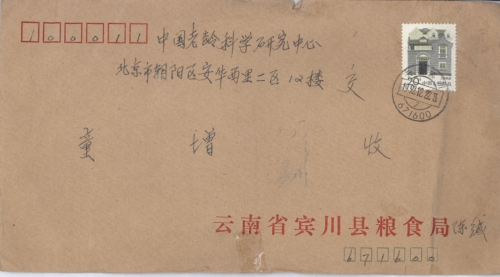 100011
中国老龄科学研究中心
北京市朝阳区安华西里二区12楼 交
童增 收
云南省宾川县粮食局 陈斌
671600
671600